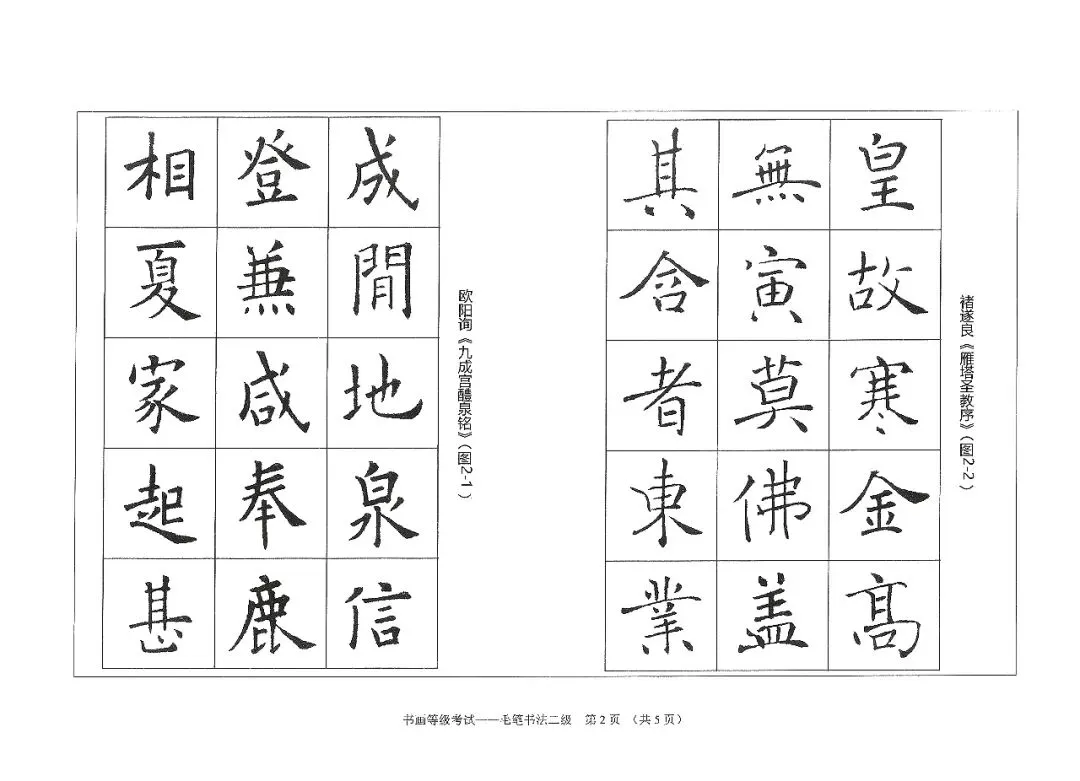 褚遂良《雁塔圣教序》（图2-2）
皇故寒金髙
無寅莫佛盖
其含者東業
欧阳询《九成宫醴泉铭》（图2-1）
成閒地泉信
登兼咸奉鹿
相夏家起甚
书画等级考试——毛笔书法二级 第2页 （共5页）